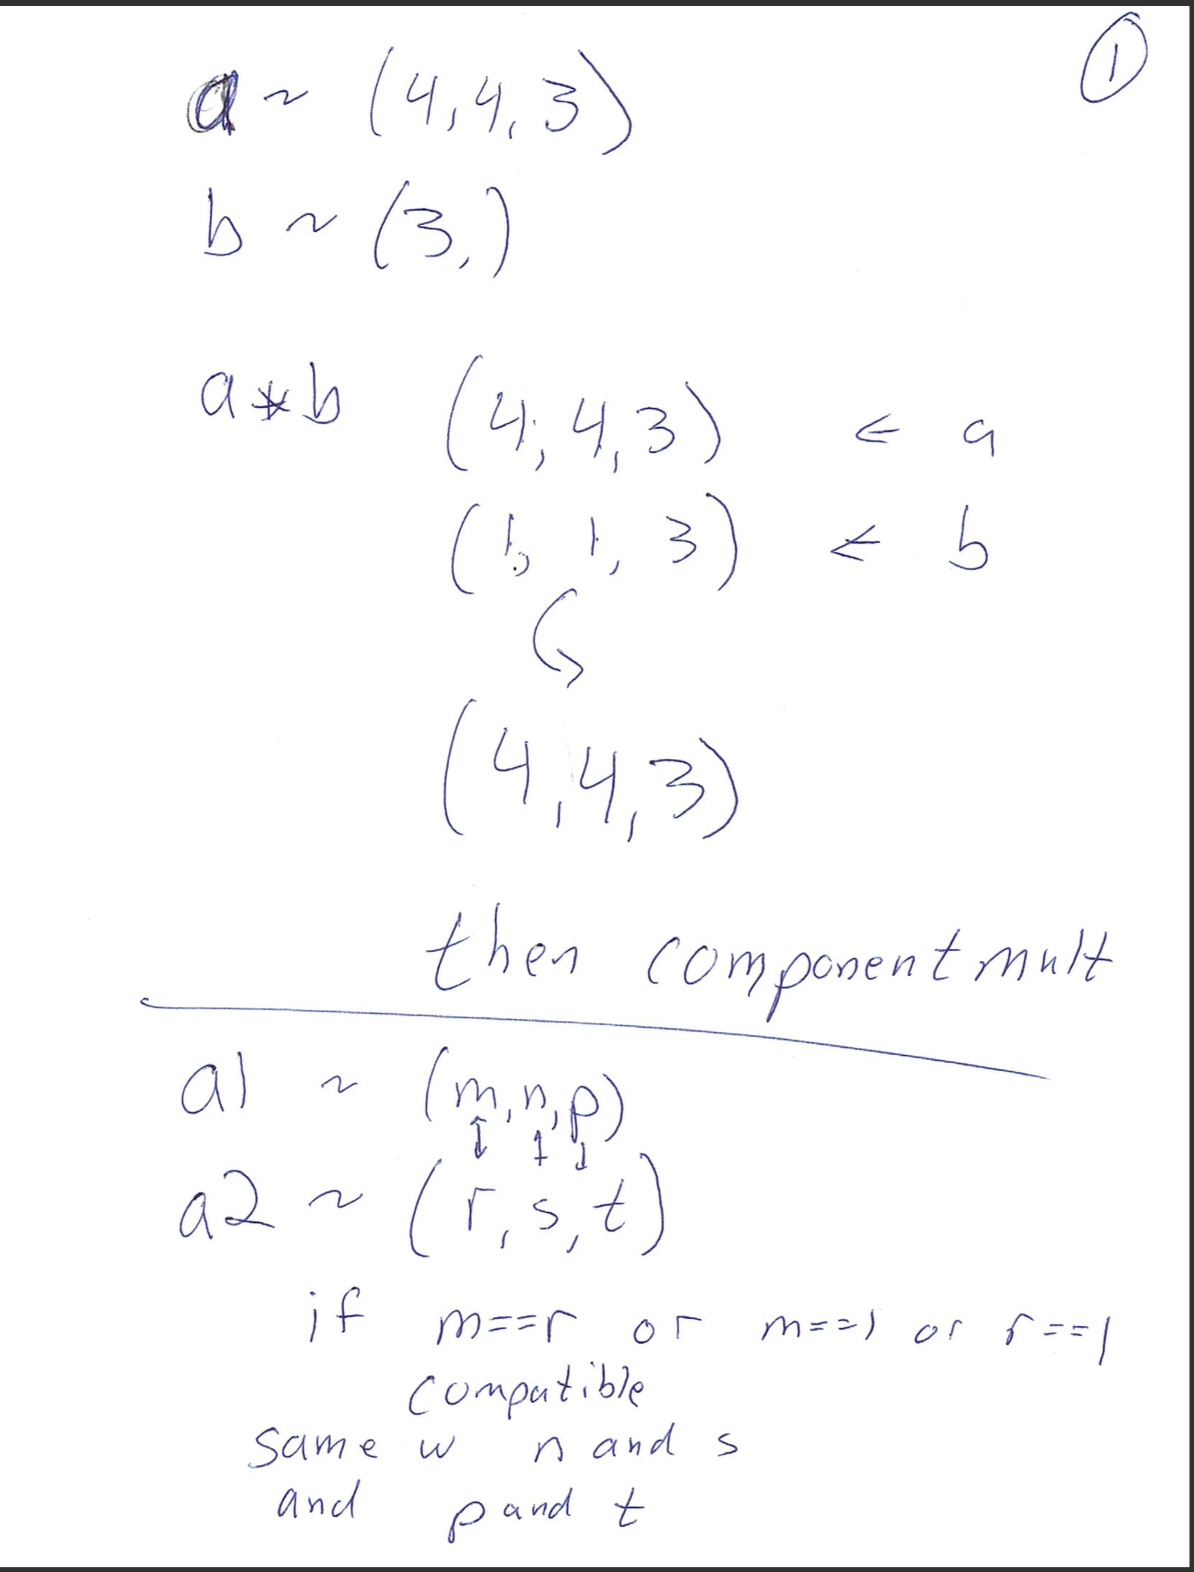 ①
a ~ (4,4,3)
b ~ (3,)
a*b (4,4,3) ← a
(1,1,3) ← b
(4,4,3)
then component mult
a1 ~ (m,n,p)
a2 ~ (r,s,t)
if m==r or m==1 or r==1
compatible
same w n and s
and p and t